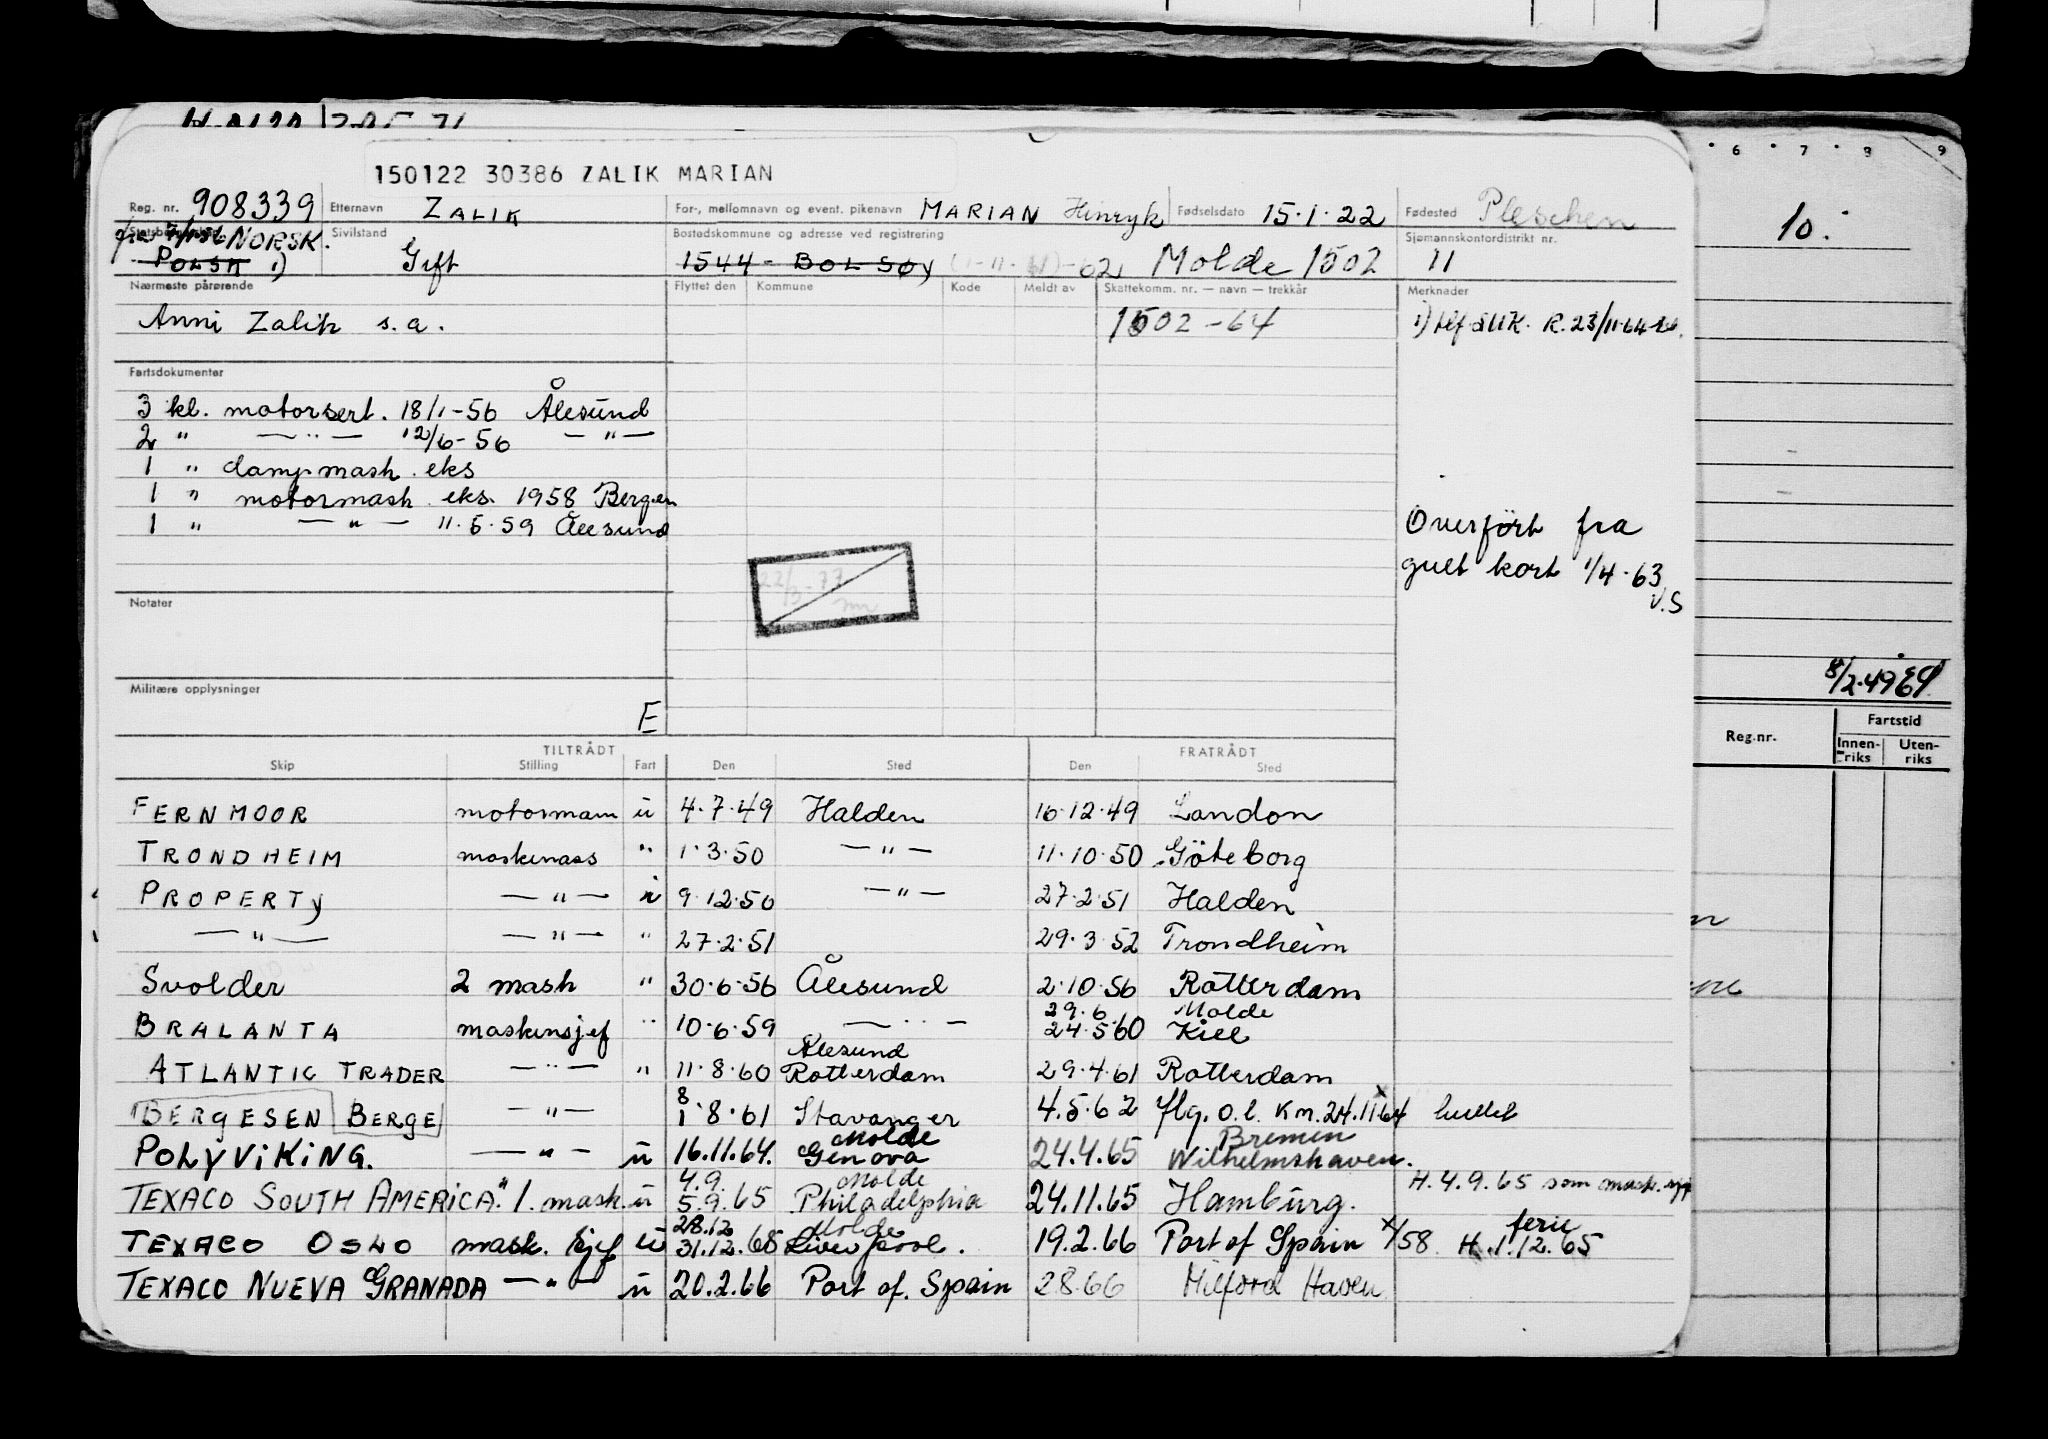 150122 30386 ZALIK MARIAN
Reg. nr. 908339 Etternavn ZALIK For-, mellomnavn og event. pikenavn MARIAN Hinryk Fødselsdato 15.1.22 Fødested Pleschen
fra NORSK. Sivilstand Bostedskommune og adresse ved registrering Sjømannskontordistrikt nr.
POLSK 1) Gift 1544 - BOLSØY -62 Molde 1502 11
Nærmeste pårørende Flyttet den Kommune Kode Meldt av Skattekomm. nr. — navn — trekkår Merknader
Anni Zalik s.a. 1502-64 1) R. 23/11-64
Fartsdokumenter
3 kl. motorsert. 18/1-56 Ålesund
2 " — " — 12/6-56 — " —
1 " dampmask. eks
1 " motormask. eks. 1958 Bergen
1 " — " — 11.5.59 Ålesund
Overført fra
gult kort 1/4-63
V.S
22/3-77
Notater
Militære opplysninger
E
8/2.49
10.
6 7 8 9
Reg.nr. Fartstid
Innen-riks Uten-riks
TILTRÅDT FRATRÅDT
Skip Stilling Fart Den Sted Den Sted
FERNMOOR motormann u 4.7.49 Halden 16.12.49 London
TRONDHEIM maskinass " 1.3.50 — " — 11.10.50 Göteborg
PROPERTY — " — i 9.12.50 — " — 27.2.51 Halden
— " — — " — " 27.2.51 29.3.52 Trondheim
Svolder 2 mask " 30.6.56 Ålesund 2.10.56 Rotterdam
29.6. Molde
BRALANTA maskinsjef " 10.6.59 — " — 24.5.60 Kiel
Ålesund
ATLANTIC TRADER — " — " 11.8.60 Rotterdam 29.4.61 Rotterdam
8
BERGESEN BERGE — " — 1.8.61 Stavanger 4.5.62 flg. o.l. Km. 24.11.64 hullet
Molde Bremen
POLYVIKING. — " — u 16.11.64. Genova 24.4.65 Wilhelmshaven.
4.9. Molde H. 4.9.65 som mask.
TEXACO SOUTH AMERICA" 1. mask. u 5.9.65 Philadelphia 24.11.65 Hamburg.
28.12 Molde ferie
TEXACO OSLO mask. sjef u 31.12.65 Liverpool. 19.2.66 Port of Spain x/58 H. 1.12.65
TEXACO NUEVA GRANADA — " — u 20.2.66 Port of. Spain 2866 Milford Haven